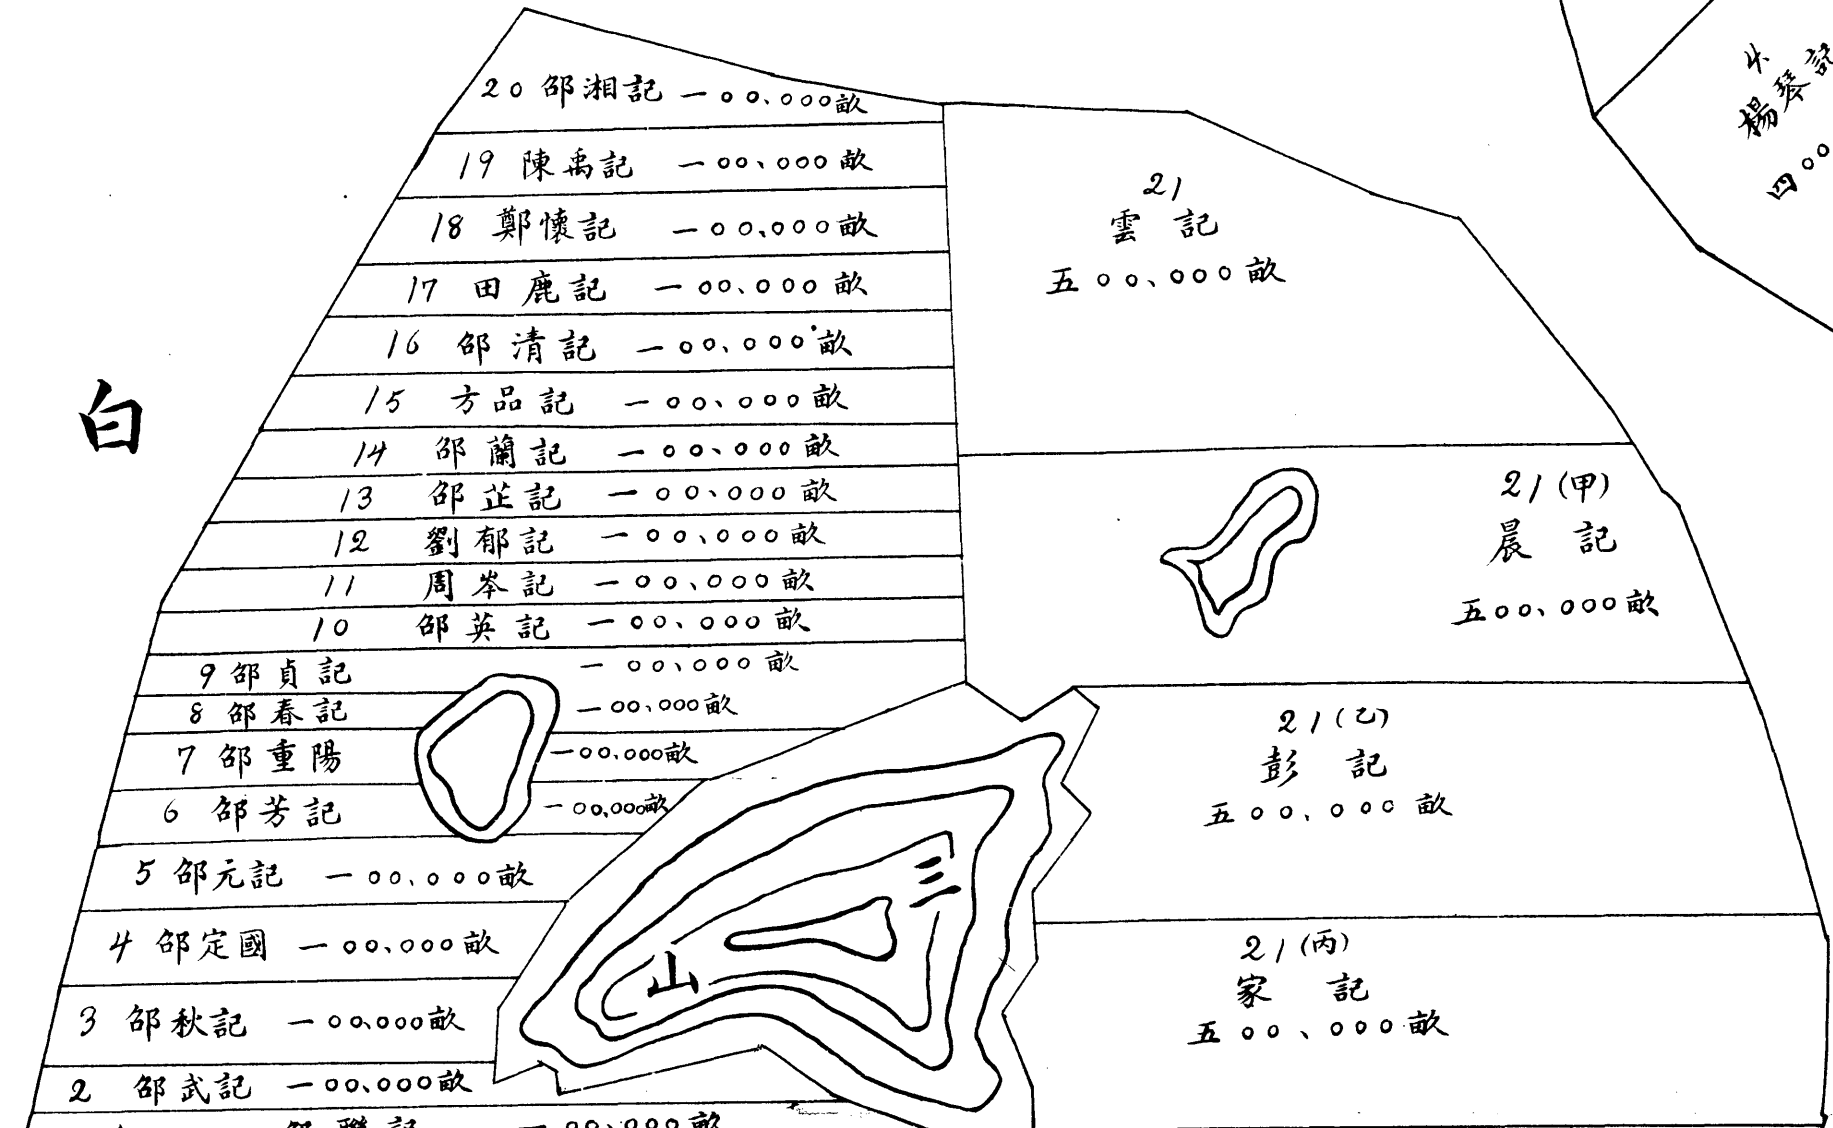 20 邵湘記 一〇〇、〇〇〇畝
19 陳禹記 一〇〇、〇〇〇畝
18 鄭懷記 一〇〇、〇〇〇畝
17 田鹿記 一〇〇、〇〇〇畝
16 邵清記 一〇〇、〇〇〇畝
15 方品記 一〇〇、〇〇〇畝
14 邵蘭記 一〇〇、〇〇〇畝
13 邵芷記 一〇〇、〇〇〇畝
12 劉郁記 一〇〇、〇〇〇畝
11 周岺記 一〇〇、〇〇〇畝
10 邵英記 一〇〇、〇〇〇畝
9 邵貞記 一〇〇、〇〇〇畝
8 邵春記 一〇〇、〇〇〇畝
7 邵重陽 一〇〇、〇〇〇畝
6 邵芳記 一〇〇、〇〇〇畝
5 邵元記 一〇〇、〇〇〇畝
4 邵定國 一〇〇、〇〇〇畝
3 邵秋記 一〇〇、〇〇〇畝
2 邵武記 一〇〇、〇〇〇畝
一〇〇、〇〇〇畝
白
三
山
21
雲記
五〇〇、〇〇〇畝
21(甲)
晨記
五〇〇、〇〇〇畝
21(乙)
彭記
五〇〇、〇〇〇畝
21(丙)
家記
五〇〇、〇〇〇畝
楊琴記
四〇〇